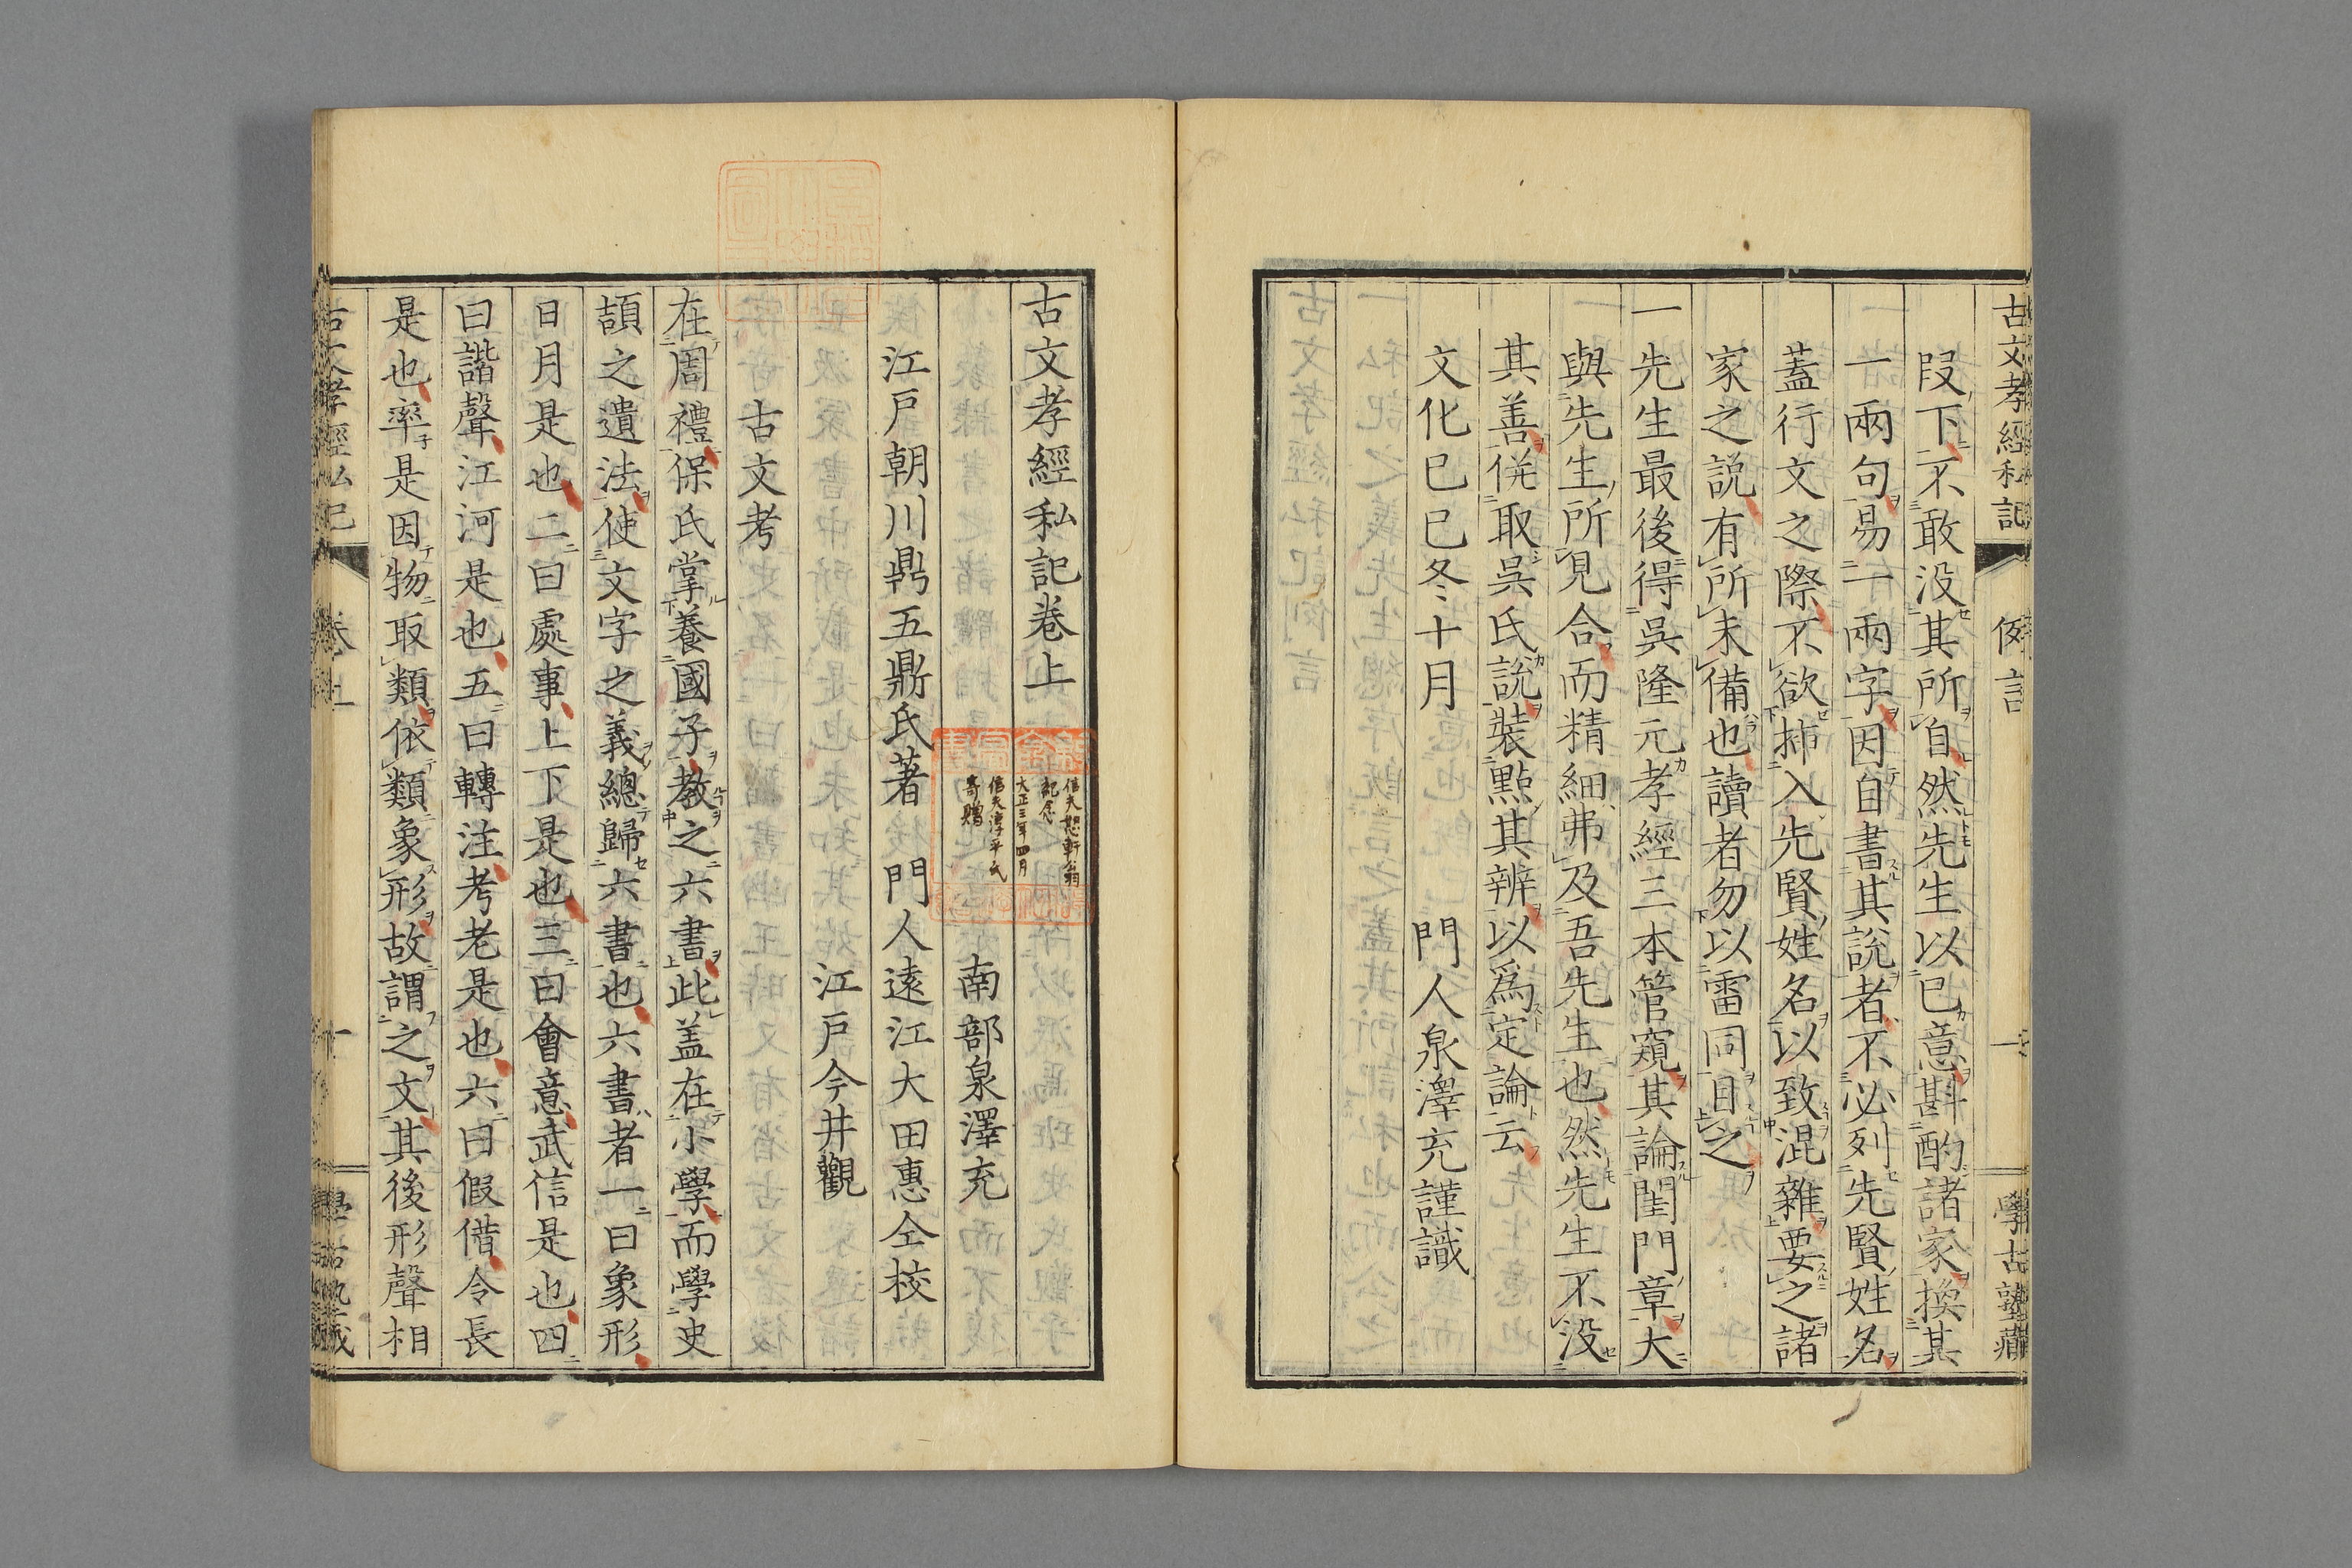 古文孝經私記
例言
一
學古塾藏
段下不敢没其所自然先生以已意斟酌諸家換其
一兩句易一兩字因自書其說者不必列先賢姓名
蓋行文之際不欲挿入先賢姓名以致混雜要之諸
家之説有所未備也讀者勿以雷同目之
一先生最後得吳隆元孝經三本管窺其論閨門章大
與先生所見合而精細弗及吾先生也然先生不没
其善併取吳氏說裝點其辨以爲定論云
文化己巳冬十月　門人泉澤充謹識
古文孝經私記卷上
南部泉澤充
江戸朝川鼎五鼎氏著　門人遠江大田惠仝校
江戸今井觀
古文考
在周禮保氏掌養國子教之六書此盖在小學而學史
頡之遺法使文字之義總歸六書也六書者一曰象形
日月是也二曰處事上下是也三曰會意武信是也四
曰諧聲江河是也五曰轉注考老是也六曰假借令長
是也率是因物取類依類象形故謂之文其後形聲相
信夫恕軒翁
記念
大正三年四月
信夫淳平氏
寄贈